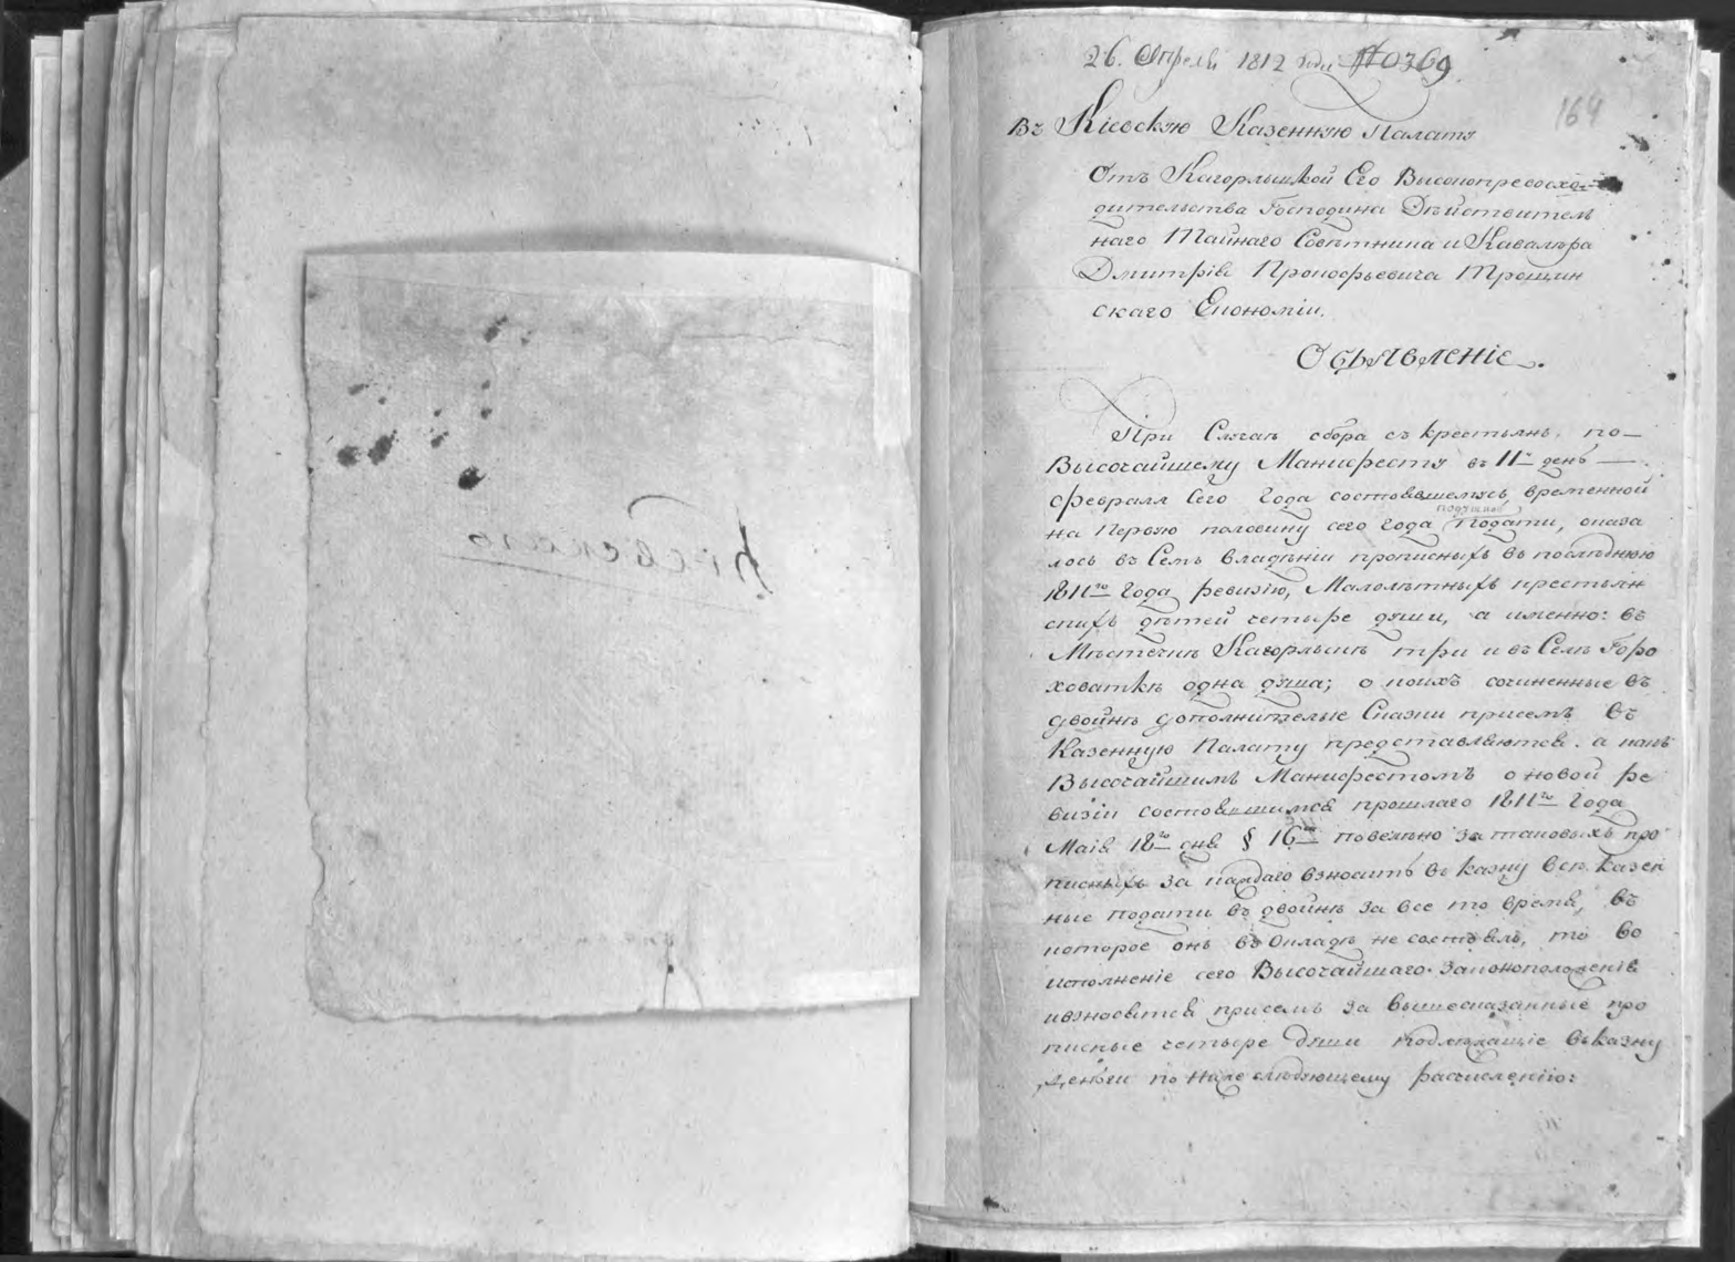 26. Апреля 1812 года № 0369
164
Въ Кіевскую Казенную Палату
Отъ Кагорлыцкой Его Высокопревосхо-
дительства Господина Дѣйствитель
наго Тайнаго Совѣтника и Кавалѣра
Дмитрія Прокофьевича Трощин
скаго Економіи.
Объявленіе.
При Случаѣ сбора съ крестьянъ, по
Высочайшему Манифесту въ 11й день
февраля сего Года состоявшемуся, временной
подушной
на Первую половину сего года Подати, оказа
лось въ Семъ владѣніи прописныхъ въ послѣднюю
1811го Года ревизію, Малолѣтныхъ крестьян
скихъ дѣтей четыре души, а именно: въ
Мѣстечкѣ Кагорлыкѣ три и въ Селѣ Горо
ховаткѣ одна душа; о коихъ сочиненные въ
двойнѣ дополнителые Сказки присемъ въ
Казенную Палату представляются. а какъ
Высочайшимъ Манифестомъ о новой ре
визіи состоявшимся прошлаго 1811го Года
Маія 18го дня § 16мъ повелѣно за таковыхъ про
писныхъ за каждаго взносить въ казну всѣ казен
ные подати въ двойнѣ за все то время, въ
которое онъ въ окладѣ не состоялъ, то во
исполненіе сего Высочайшаго законоположенія
ивзносятся присемъ за вышесказанные про
писные четыре души подлежащіе въ казну
деньги по ниже слѣдующему расчисленію: